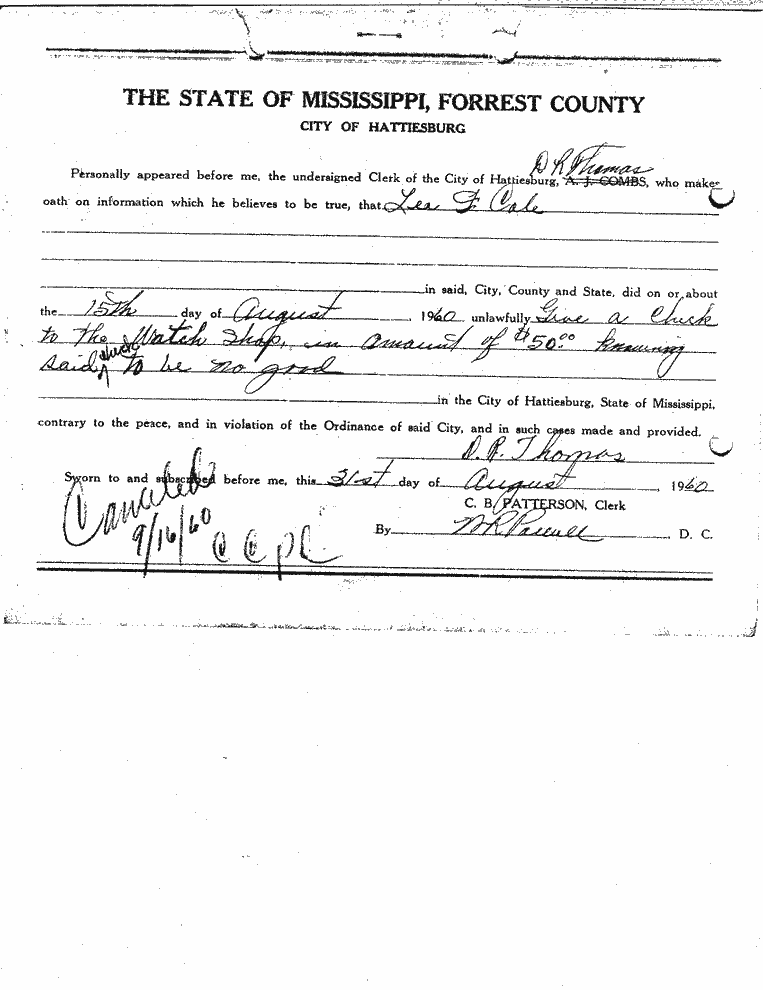 THE STATE OF MISSISSIPPI, FORREST COUNTY
CITY OF HATTIESBURG
D R Thomas
Personally appeared before me, the undersigned Clerk of the City of Hattiesburg, A. J. COMBS, who makes
oath on information which he believes to be true, that Leo F Cole
in said, City, County and State, did on or about
the 15th day of August, 1960 unlawfully Give a Check
to the Watch Shop, in amount of $50.00 knowing
said check to be no good
in the City of Hattiesburg, State of Mississippi,
contrary to the peace, and in violation of the Ordinance of said City, and in such cases made and provided.
D. R. Thomas
Sworn to and subscribed before me, this 31st day of August, 1960
C. B. PATTERSON, Clerk
By D. C.
Canceled
9/16/60